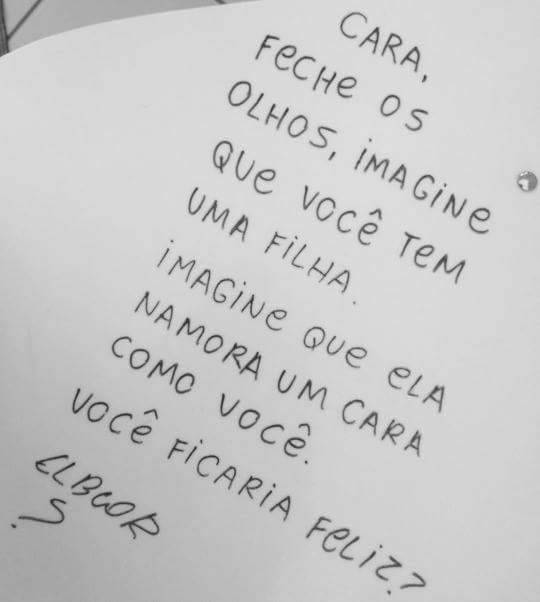 CARA,
FECHE OS
OLHOS, IMAGINE
QUE VOCÊ TEM
UMA FILHA.
IMAGINE QUE ELA
NAMORA UM CARA
COMO VOCÊ.
VOCÊ FICARIA FELIZ?